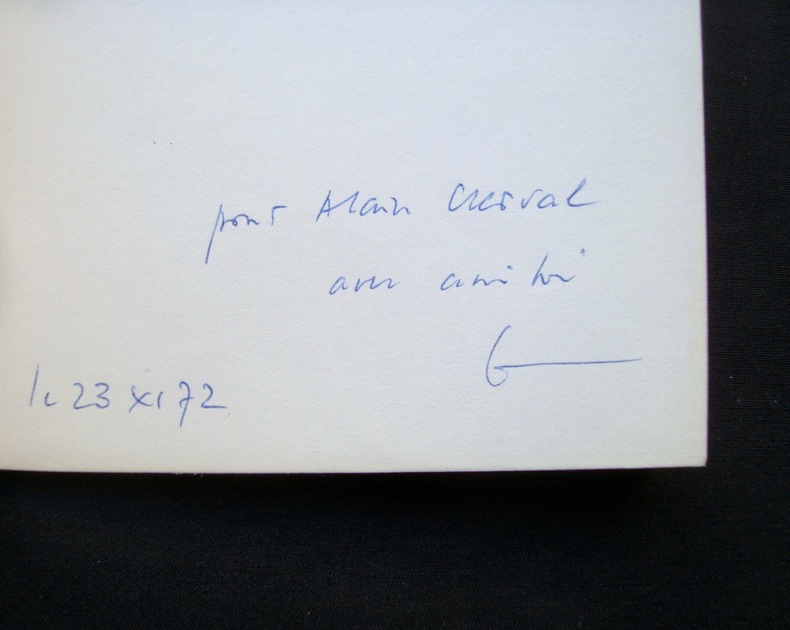 pour Alain Clerval
avec amitié
G
le 23 XI 72